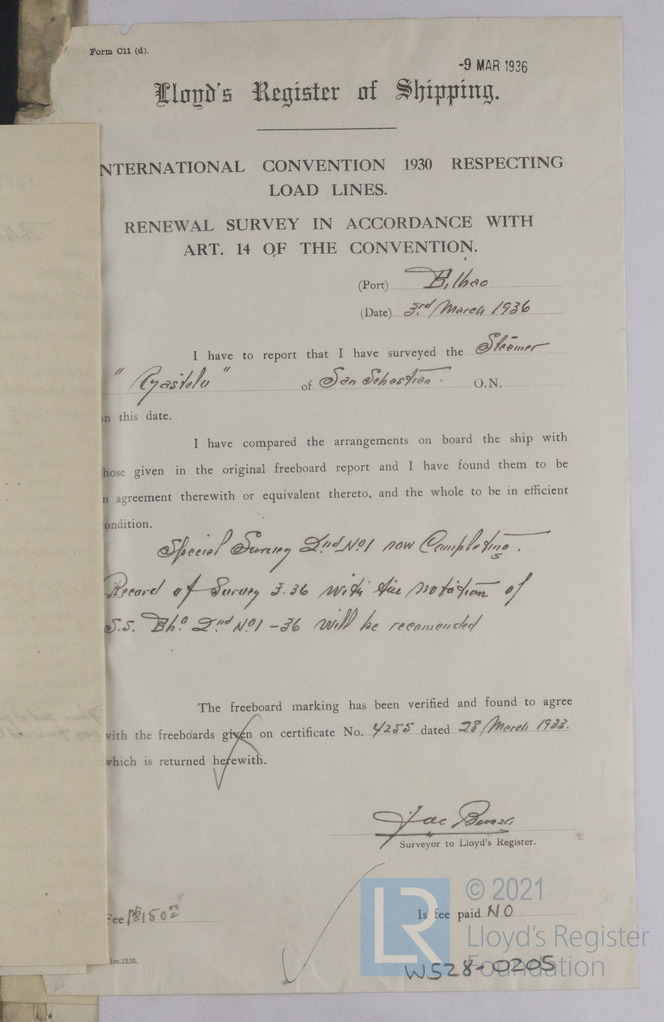 Form C11 (d).
-9 MAR 1936
Lloyd's Register of Shipping.
NTERNATIONAL CONVENTION 1930 RESPECTING
LOAD LINES.
RENEWAL SURVEY IN ACCORDANCE WITH
ART. 14 OF THE CONVENTION.
(Port) Bilbao
(Date) 3rd March 1936
I have to report that I have surveyed the Steamer
"Gastelu" of San Sebastian. O.N.
n this date.
I have compared the arrangements on board the ship with
hose given in the original freeboard report and I have found them to be
n agreement therewith or equivalent thereto, and the whole to be in efficient
ondition.
Special Survey 2nd No1 now Completing.
Record of Survey 3.36 with the notation of
S.S. Bho 2nd No1 -36 will be recomended
The freeboard marking has been verified and found to agree
with the freeboards given on certificate No. 4255 dated 28 March 1933.
which is returned herewith.
Surveyor to Lloyd's Register.
Fee 150
Is fee paid NO
© 2021
LR
Lloyd's Register
Foundation
W528-0205